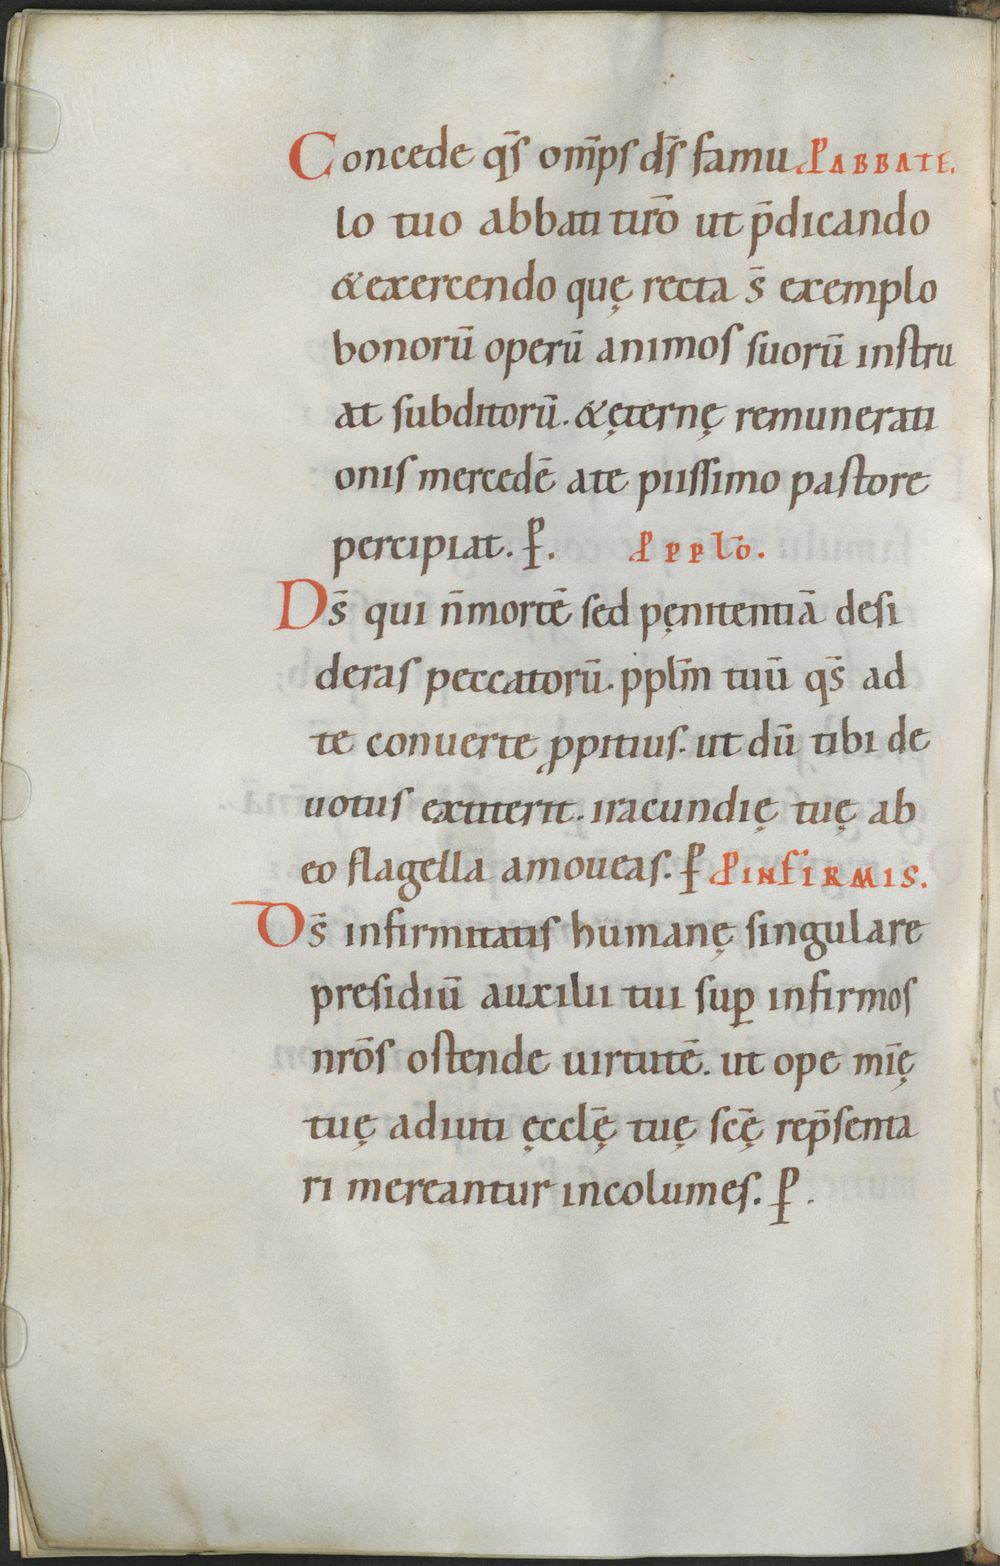 Concede q̄s om̄ps d̄s famu P ABBATE.
lo tuo abbati nr̄o ut p̄dicando
& exercendo quę recta s̄ exemplo
bonorū operū animos suorū instru
at subditorū. & ęternę remunerati
onis mercedē a te piissimo pastore
percipiat. P̱. P PPLŌ.
Ds̄ qui n̄ mortē sed pęnitentiā desi
deras peccatorū. ppl̄m tuū q̄s ad
te conuerte ꝓpitius. ut dū tibi de
uotus extiterit. iracundię tuę ab
eo flagella amoueas. P̱ P INFIRMIS.
Ds̄ infirmitatis humanę singulare
presidiū auxilii tui suꝑ infirmos
nr̄os ostende uirtutē. ut ope mīę
tuę adiuti ęcclę̄ tuę scę̄ rep̄senta
ri mereantur incolumes. P̱.